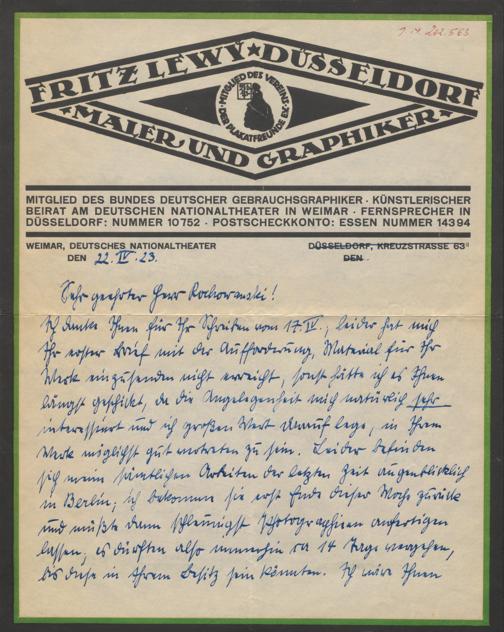 J. N. 202.563
FRITZ LEWY ★ DÜSSELDORF
MITGLIED DES VEREINS
DER PLAKATFREUNDE E.V.
★ MALER UND GRAPHIKER ★
MITGLIED DES BUNDES DEUTSCHER GEBRAUCHSGRAPHIKER · KÜNSTLERISCHER
BEIRAT AM DEUTSCHEN NATIONALTHEATER IN WEIMAR · FERNSPRECHER IN
DÜSSELDORF: NUMMER 10752 · POSTSCHECKKONTO: ESSEN NUMMER 14394
WEIMAR, DEUTSCHES NATIONALTHEATER
DÜSSELDORF, KREUZSTRASSE 63II
DEN 22. IV. 23.
DEN
Sehr geehrter Herr
Ich danke Ihnen für Ihr Schreiben vom 17. IV., leider hat mich
Ihr erster Brief mit der Aufforderung, Material für Ihr
Werk einzusenden nicht erreicht, sonst hätte ich es Ihnen
längst geschickt, da die Angelegenheit mich natürlich sehr
interessiert und ich großen Wert darauf lege, in Ihrem
Werk möglichst gut vertreten zu sein. Leider befinden
sich meine sämtlichen Arbeiten der letzten Zeit augenblicklich
in Berlin; ich bekomme sie erst Ende dieser Woche zurück
und müßte dann schleunigst Photographieen anfertigen
lassen; es dürften also immerhin ca 14 Tage vergehen,
bis diese in Ihrem Besitz sein könnten. Ich wäre Ihnen